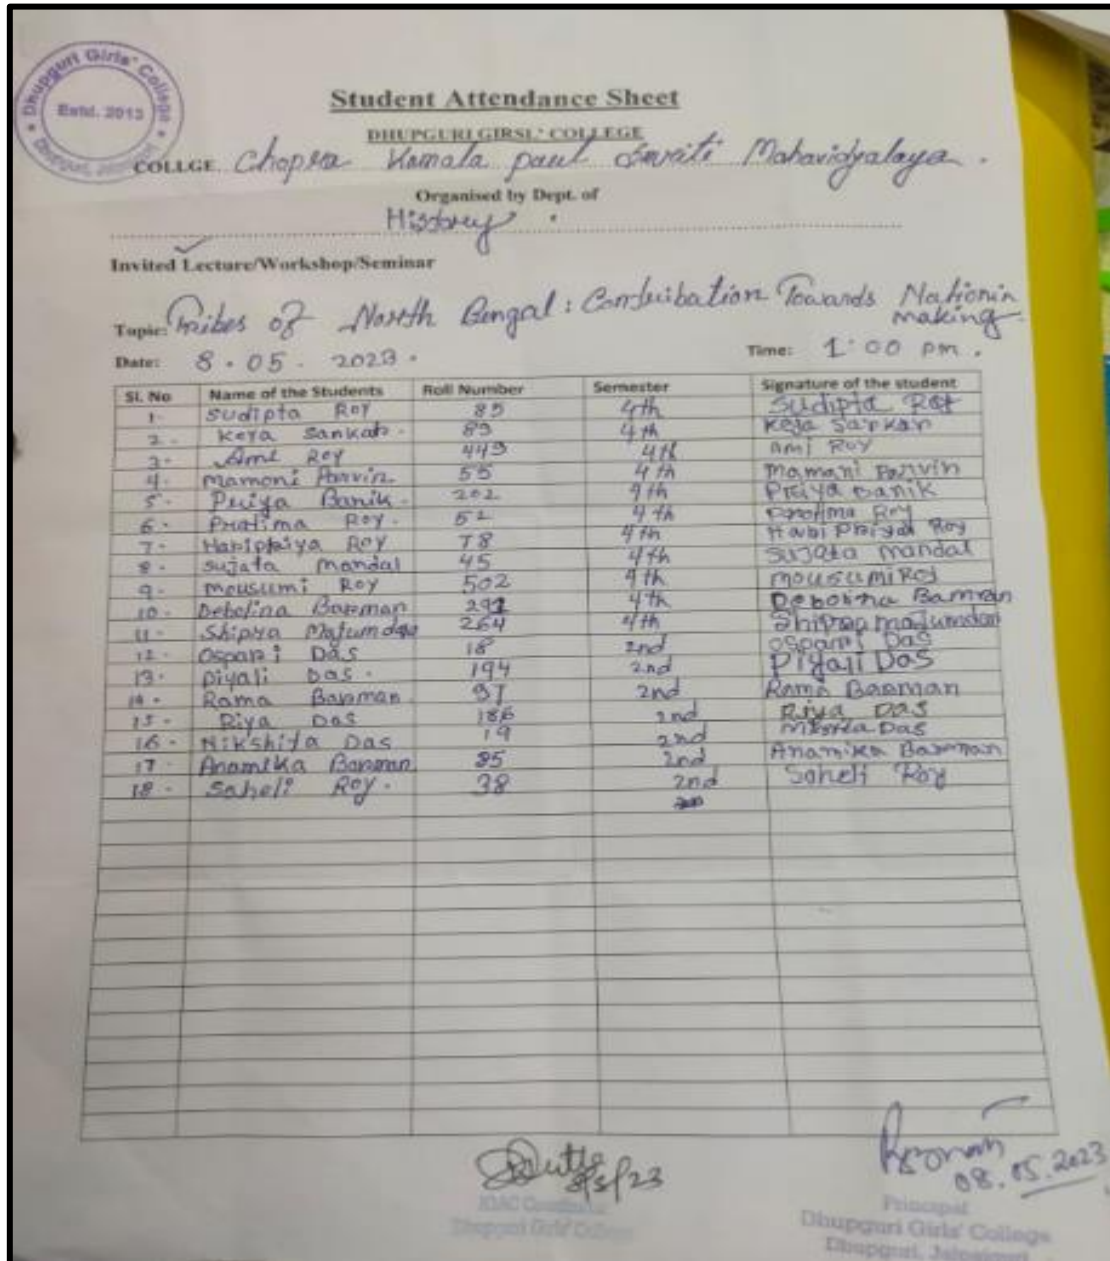 Dhupguri Girls' College
Estd. 2013
Student Attendance Sheet
DHUPGURI GIRSL' COLLEGE
COLLGE Chopra Kamala paul Smriti Mahavidyalaya.
Organised by Dept. of
History.
Invited Lecture/Workshop/Seminar
Topic: Tribes of North Bengal: Contribation Towards Nationin making
Date: 8.05.2023. Time: 1:00 pm.
Sl. No Name of the Students Roll Number Semester Signature of the student
1- Sudipta Roy 85 4th Sudipta Roy
2- Keya Sarkar. 89 4th Keya Sarkar
3- Ami Roy 449 4th Ami Roy
4- Mamoni Parvin 55 4th Mamani Parvin
5- Priya Banik. 202 4th Priya Banik
6- Pratima Roy. 52 4th Pratima Roy
7- Haripriya Roy 78 4th Hari Priya Roy
8- Sujata Mandal 45 4th Sujata Mandal
9- Mousumi Roy 502 4th Mousumi Roy
10- Debolina Barman 4th Debolina Barman
11- Shipra Majumdar 264 4th Shipra Majumdar
12- Ospari Das 18 2nd Ospari Das
13- Piyali Das. 194 2nd Piyali Das
14- Rama Barman 2nd Rama Barman
15- Riya Das 186 2nd Riya Das
16- Nikshita Das 19 2nd Das
17- Anamika Barman 85 2nd Anamika Barman
18- Saheli Roy. 38 2nd Saheli Roy
8/5/23
08.05.2023
IQAC Coordinator
Principal
Dhupguri Girls' College
Dhupguri Girls' College
Dhupguri, Jalpaiguri